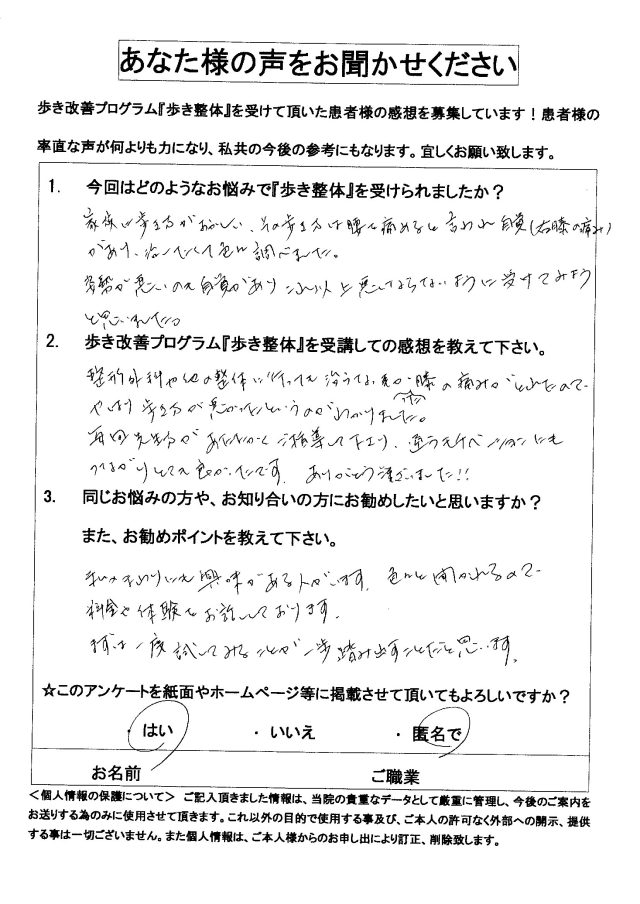 あなた様の声をお聞かせください
歩き改善プログラム『歩き整体』を受けて頂いた患者様の感想を募集しています！患者様の
率直な声が何よりも力になり、私共の今後の参考にもなります。宜しくお願い致します。
1. 今回はどのようなお悩みで『歩き整体』を受けられましたか？
家族に歩き方がおかしい、その歩き方は腰を痛めると言われ自覚(右膝の痛み)
があり、治したくて色々調べました。
姿勢が悪いのも自覚がありこれ以上悪くならないように受けてみよう
と思いました。
2. 歩き改善プログラム『歩き整体』を受講しての感想を教えて下さい。
整形外科や他の整体に行っても治らない 膝の痛みがとれたので
やはり歩き方が悪かったというのがわかりました。
毎回先生方があたたかくご指導して下さり、通うモチベーションにも
つながりとても良かったです。ありがとうございました!!
3. 同じお悩みの方や、お知り合いの方にお勧めしたいと思いますか？
また、お勧めポイントを教えて下さい。
私のまわりにも興味がある人がいます。色々と聞かれるので
料金や体験をお話しております。
まずは一度試してみることが一歩踏み出すことだと思います。
☆このアンケートを紙面やホームページ等に掲載させて頂いてもよろしいですか？
・はい ・いいえ ・匿名で
お名前 ご職業
＜個人情報の保護について＞ ご記入頂きました情報は、当院の貴重なデータとして厳重に管理し、今後のご案内を
お送りする為のみに使用させて頂きます。これ以外の目的で使用する事及び、ご本人の許可なく外部への開示、提供
する事は一切ございません。また個人情報は、ご本人様からのお申し出により訂正、削除致します。